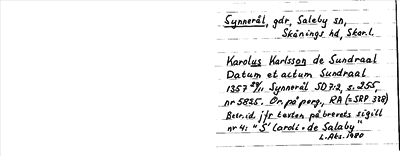 Synnerål, gdr, Saleby sn,
Skånings hd, Skar.l.
Karolus Karlsson de Sundraal
Datum et actum Sundraal
1357 29/11 Synnerål SD7:2, s. 255,
nr 5835. Or. på perg., RA (=SRP 338)
Betr. id. jfr texten på brevets sigill
nr 4: "S' Caroli · de Salaby"
L. Ahs. 1980